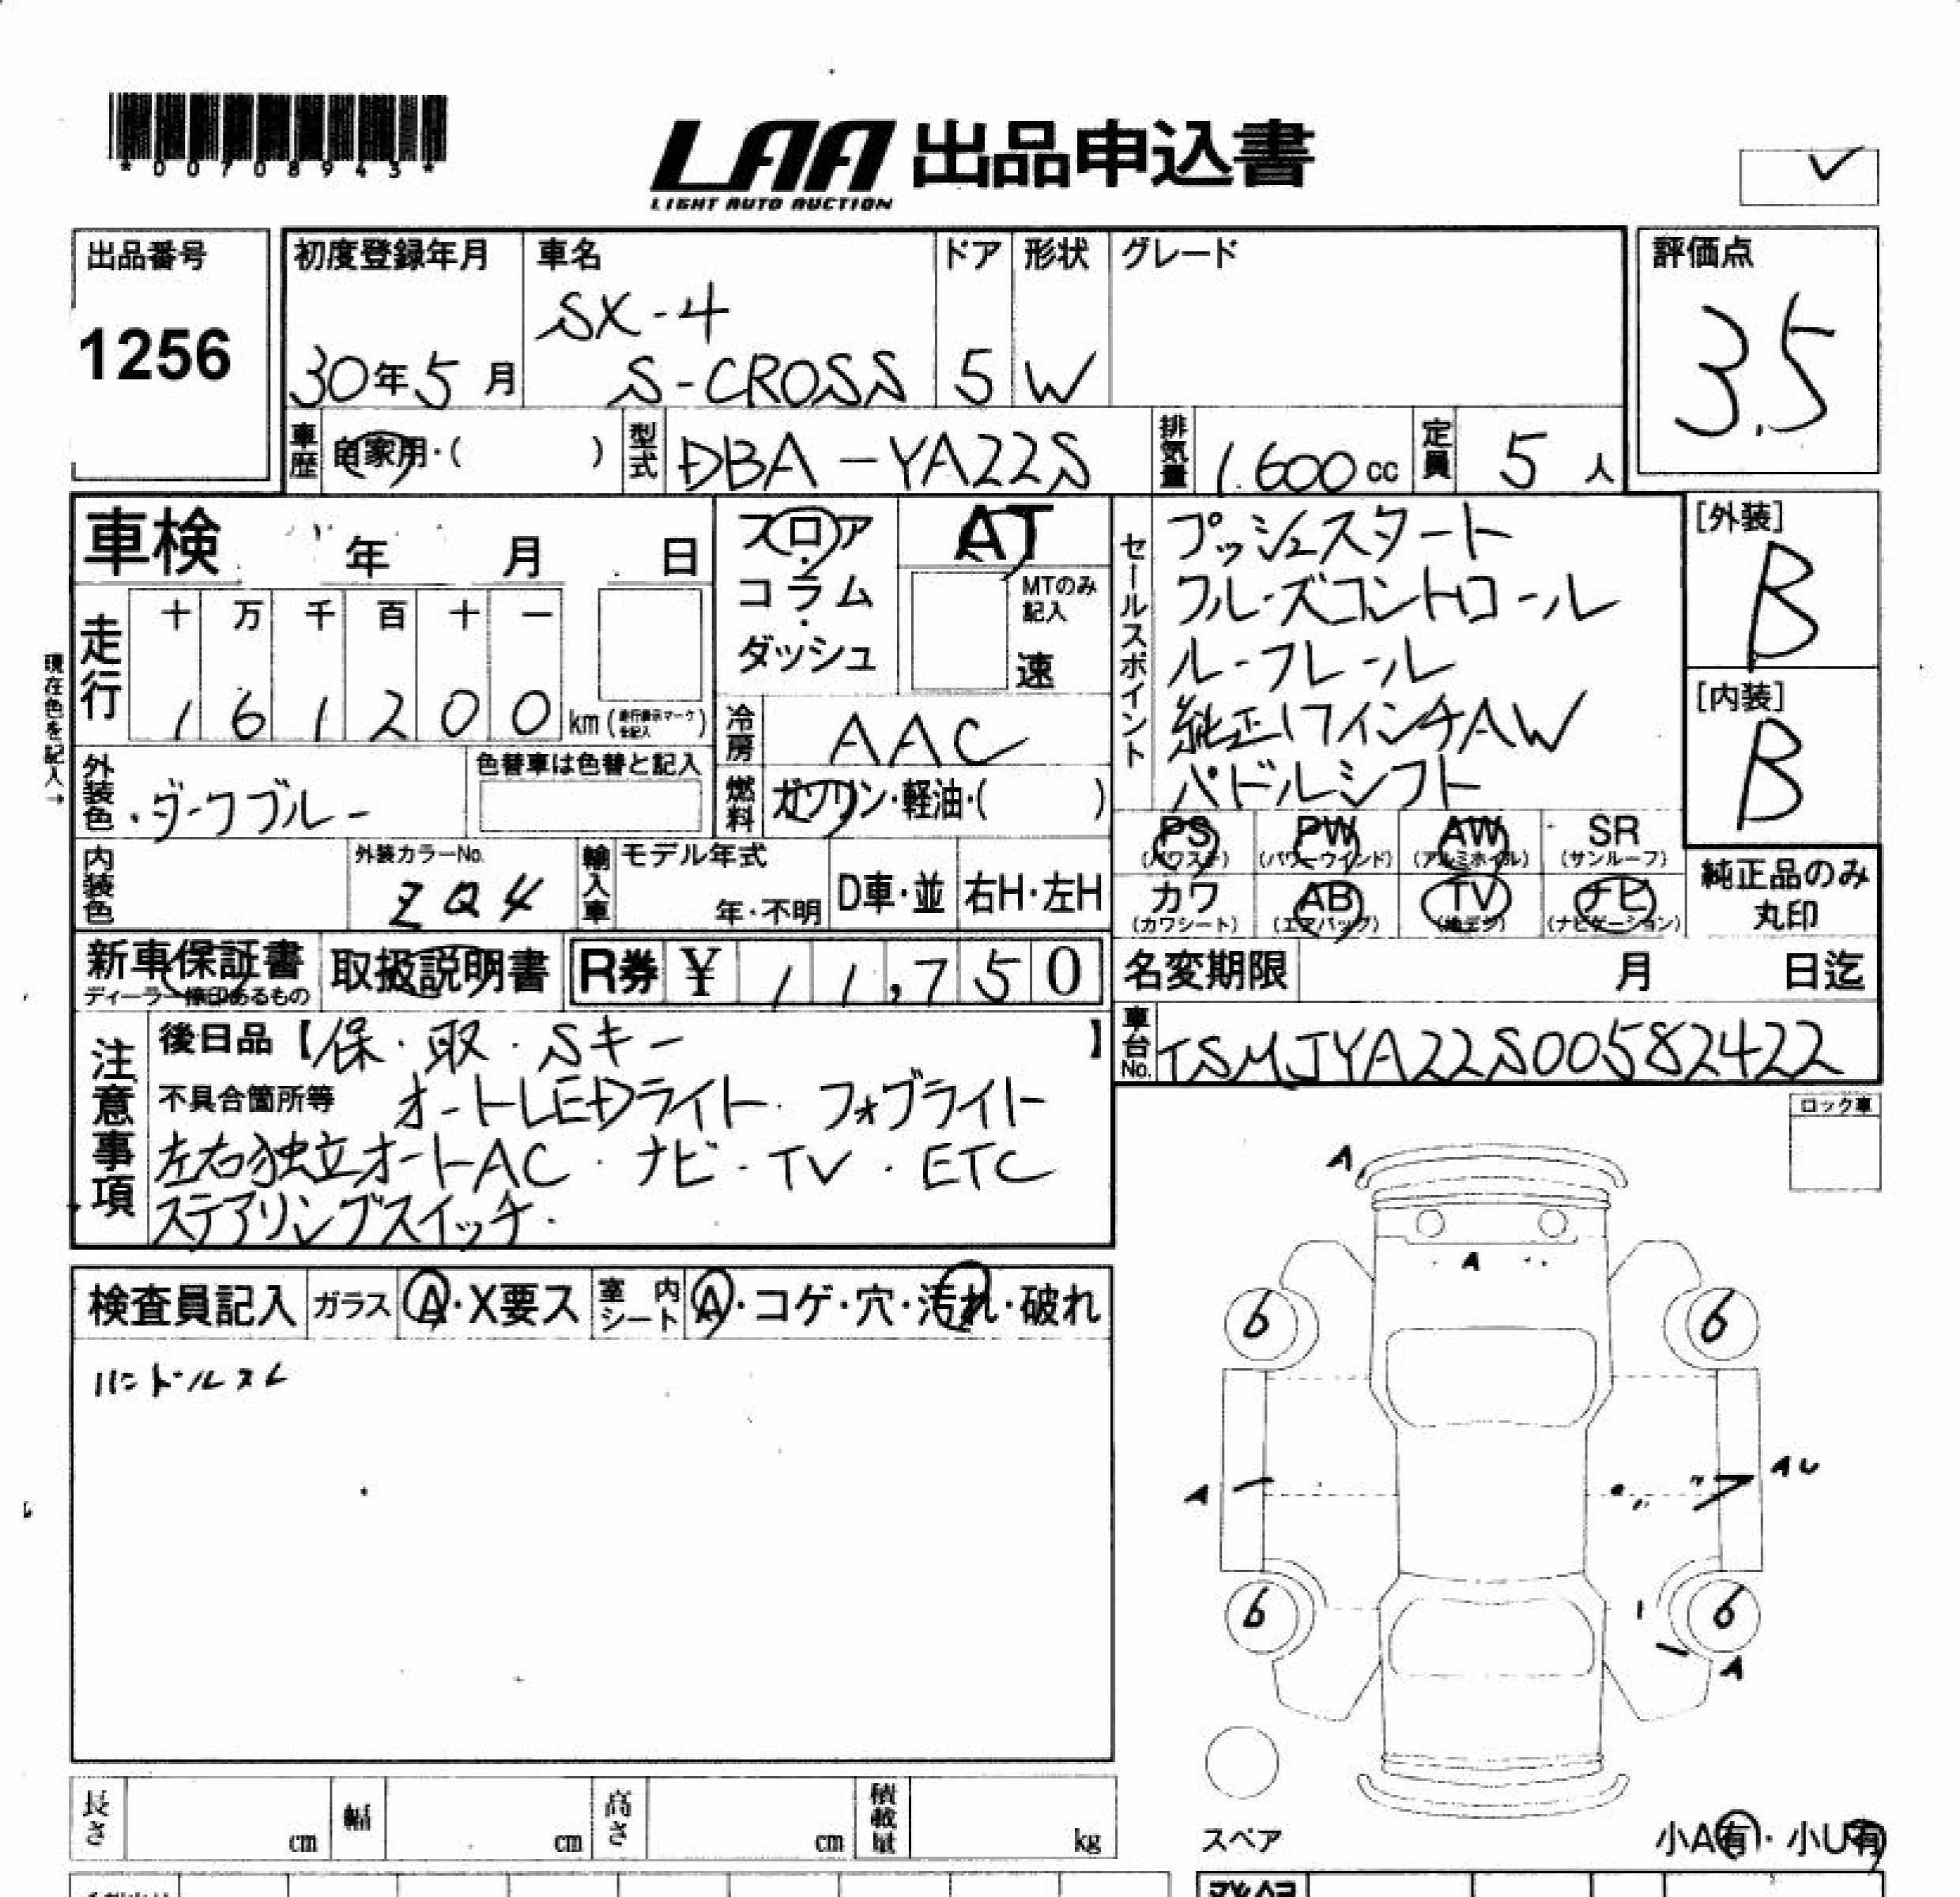 *00708943*
LAA 出品申込書
LIGHT AUTO AUCTION
出品番号
1256
初度登録年月
30年5月
車名
SX-4
S-CROSS
ドア
5
形状
W
グレード
評価点
3.5
車歴 自家用・( )
型式 DBA-YA22S
排気量 1.600cc
定員 5人
車検 年 月 日
現在色を記入→
走行
十 万 千 百 十 一
1 6 1 2 0 0 km
外装色 ダークブルー
色替車は色替と記入
内装色
外装カラーNo.
ZQ4
輸入車
モデル年式
年・不明
D車・並
右H・左H
フロア
・
コラム
・
ダッシュ
AT
MTのみ
記入
速
冷房 AAC
燃料 ガソリン・軽油・( )
セールスポイント
プッシュスタート
クルーズコントロール
ルーフレール
純正17インチAW
パドルシフト
[外装]
B
[内装]
B
PS
(パワステ)
PW
(パワーウインド)
AW
(アルミホイル)
SR
(サンルーフ)
カワ
(カワシート)
AB
(エアバッグ)
TV
(地デジ)
ナビ
(ナビゲーション)
純正品のみ
丸印
新車保証書
取扱説明書
R券 ¥ 11,750
名変期限 月 日迄
車台No. TSMJYA22S00582422
注意事項
後日品【保・取・Sキー 】
不具合箇所等 オートLEDライト・フォグライト
左右独立オートAC・ナビ・TV・ETC
ステアリングスイッチ
ロック車
検査員記入
ガラス A・X要ス
室内シート A・コゲ・穴・汚れ・破れ
ハンドルスレ
A
A
6
6
A
AU
6
6
A
スペア
小A有・小U有
長さ cm
幅 cm
高さ cm
積載量 kg